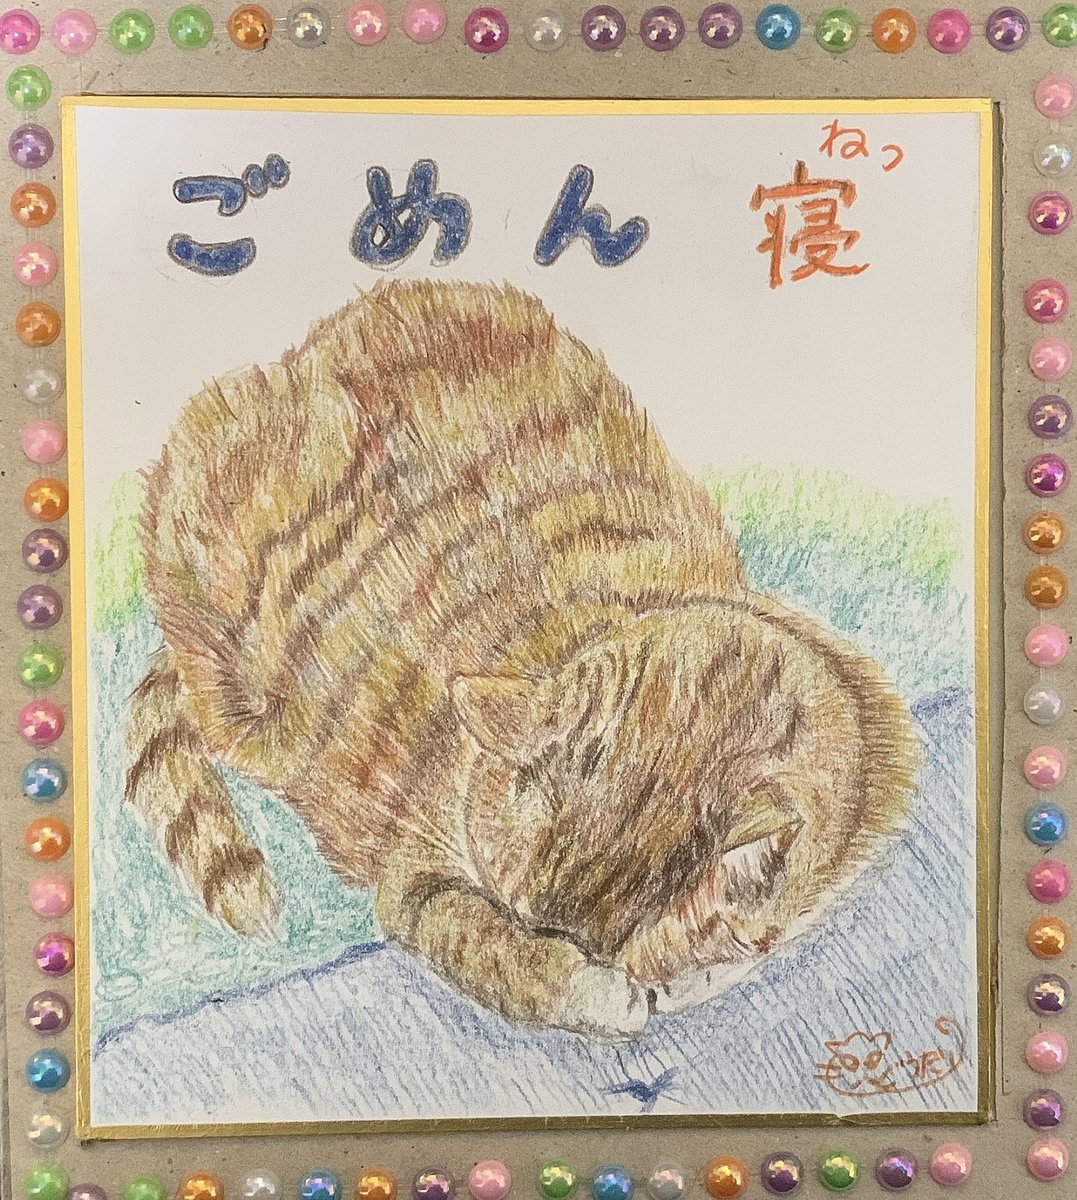 ごめん寝
ねっ